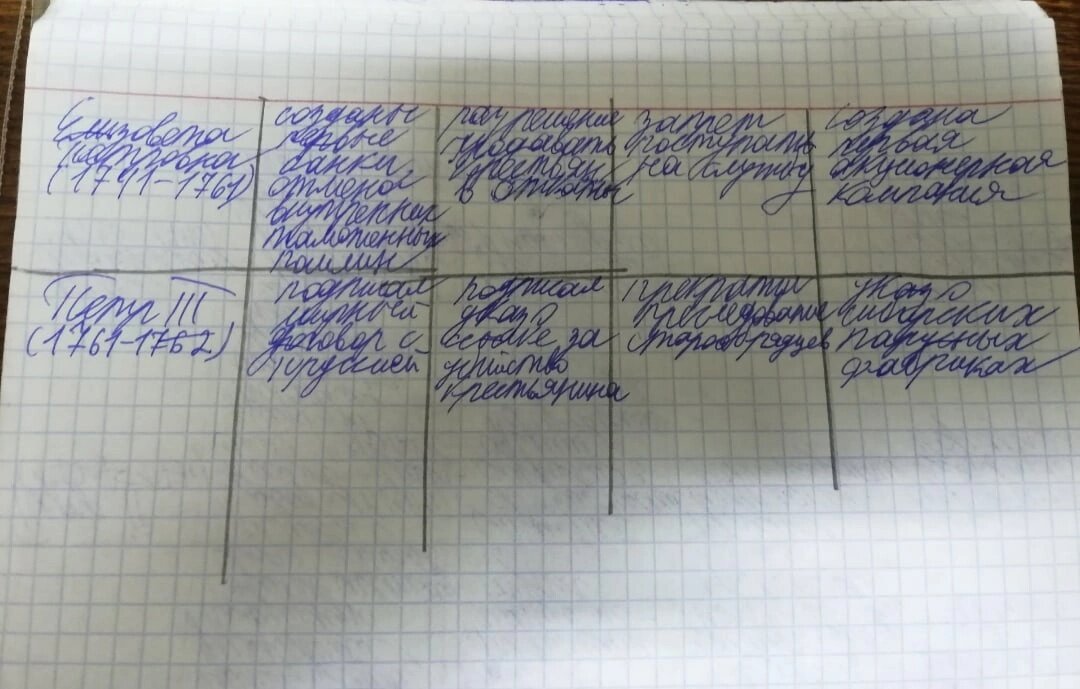 Елизовета
Петровна
(1741-1761)
созданы
первые
банки,
отмена
внутренних
таможенных
пошлин
разрешение
продавать
крестьян
в
запрет
поступать
на службу
создана
первая
акционерная
компания
Петр III
(1761-1762)
подписал
мирный
договор с
Пруссией
подписал
указ о
ссылке за
убийство
крестьянина
прекратил
преследование
старообрядцев
указ о
сибирских
парусных
фабриках